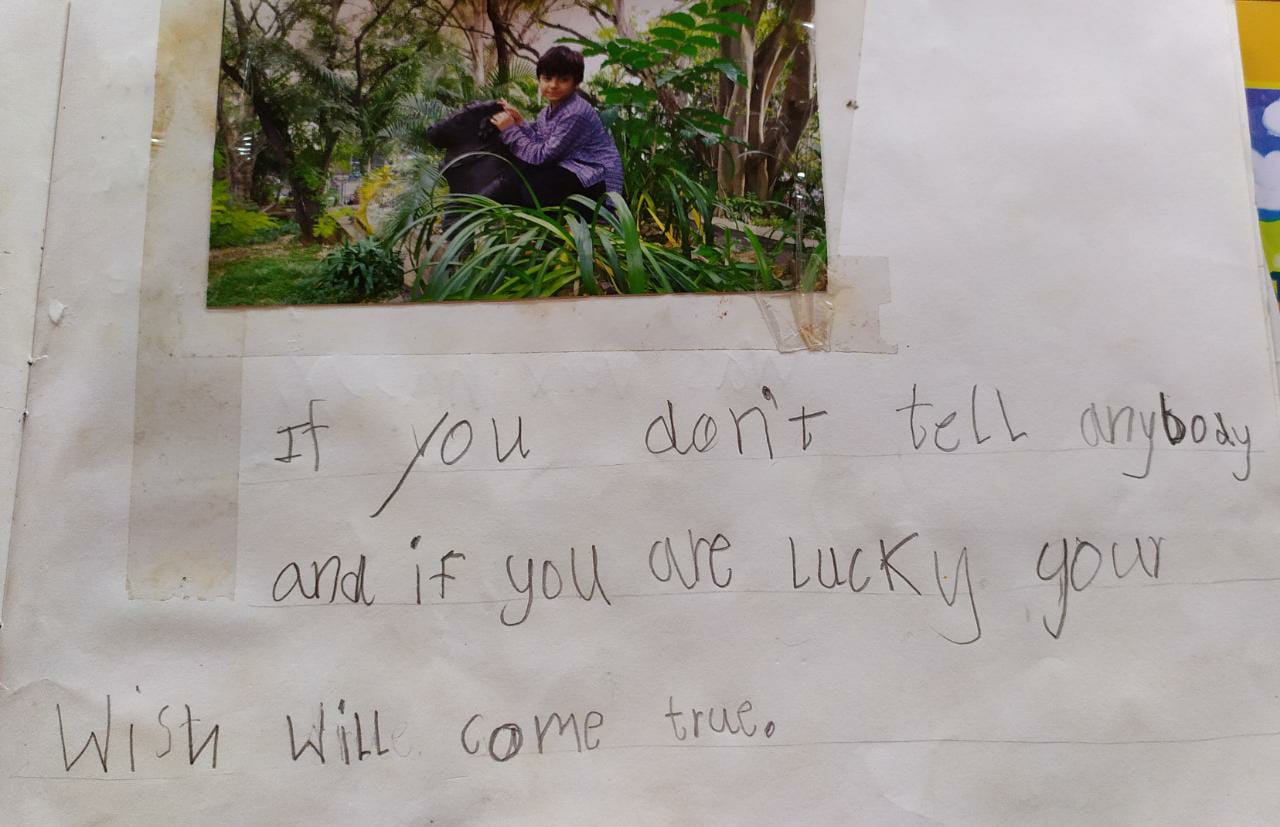 If you don't tell anybody
and if you are lucky your
Wish will come true.